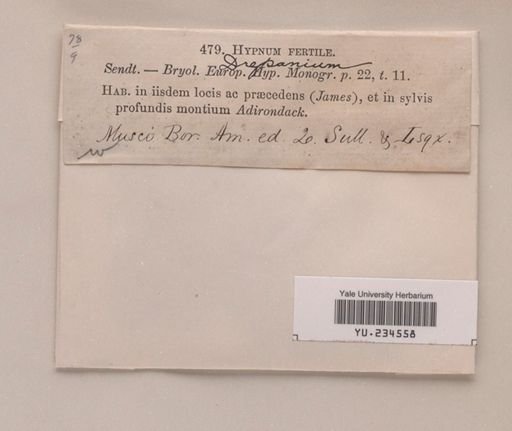 78
9
479. HYPNUM FERTILE.
Drepanium
Sendt. — Bryol. Europ. Hyp. Monogr. p. 22, t. 11.
HAB. in iisdem locis ac præcedens (James), et in sylvis
profundis montium Adirondack.
Musci Bor. Am. ed. 2. Sull. & Lsqx.
Yale University Herbarium
YU.234558